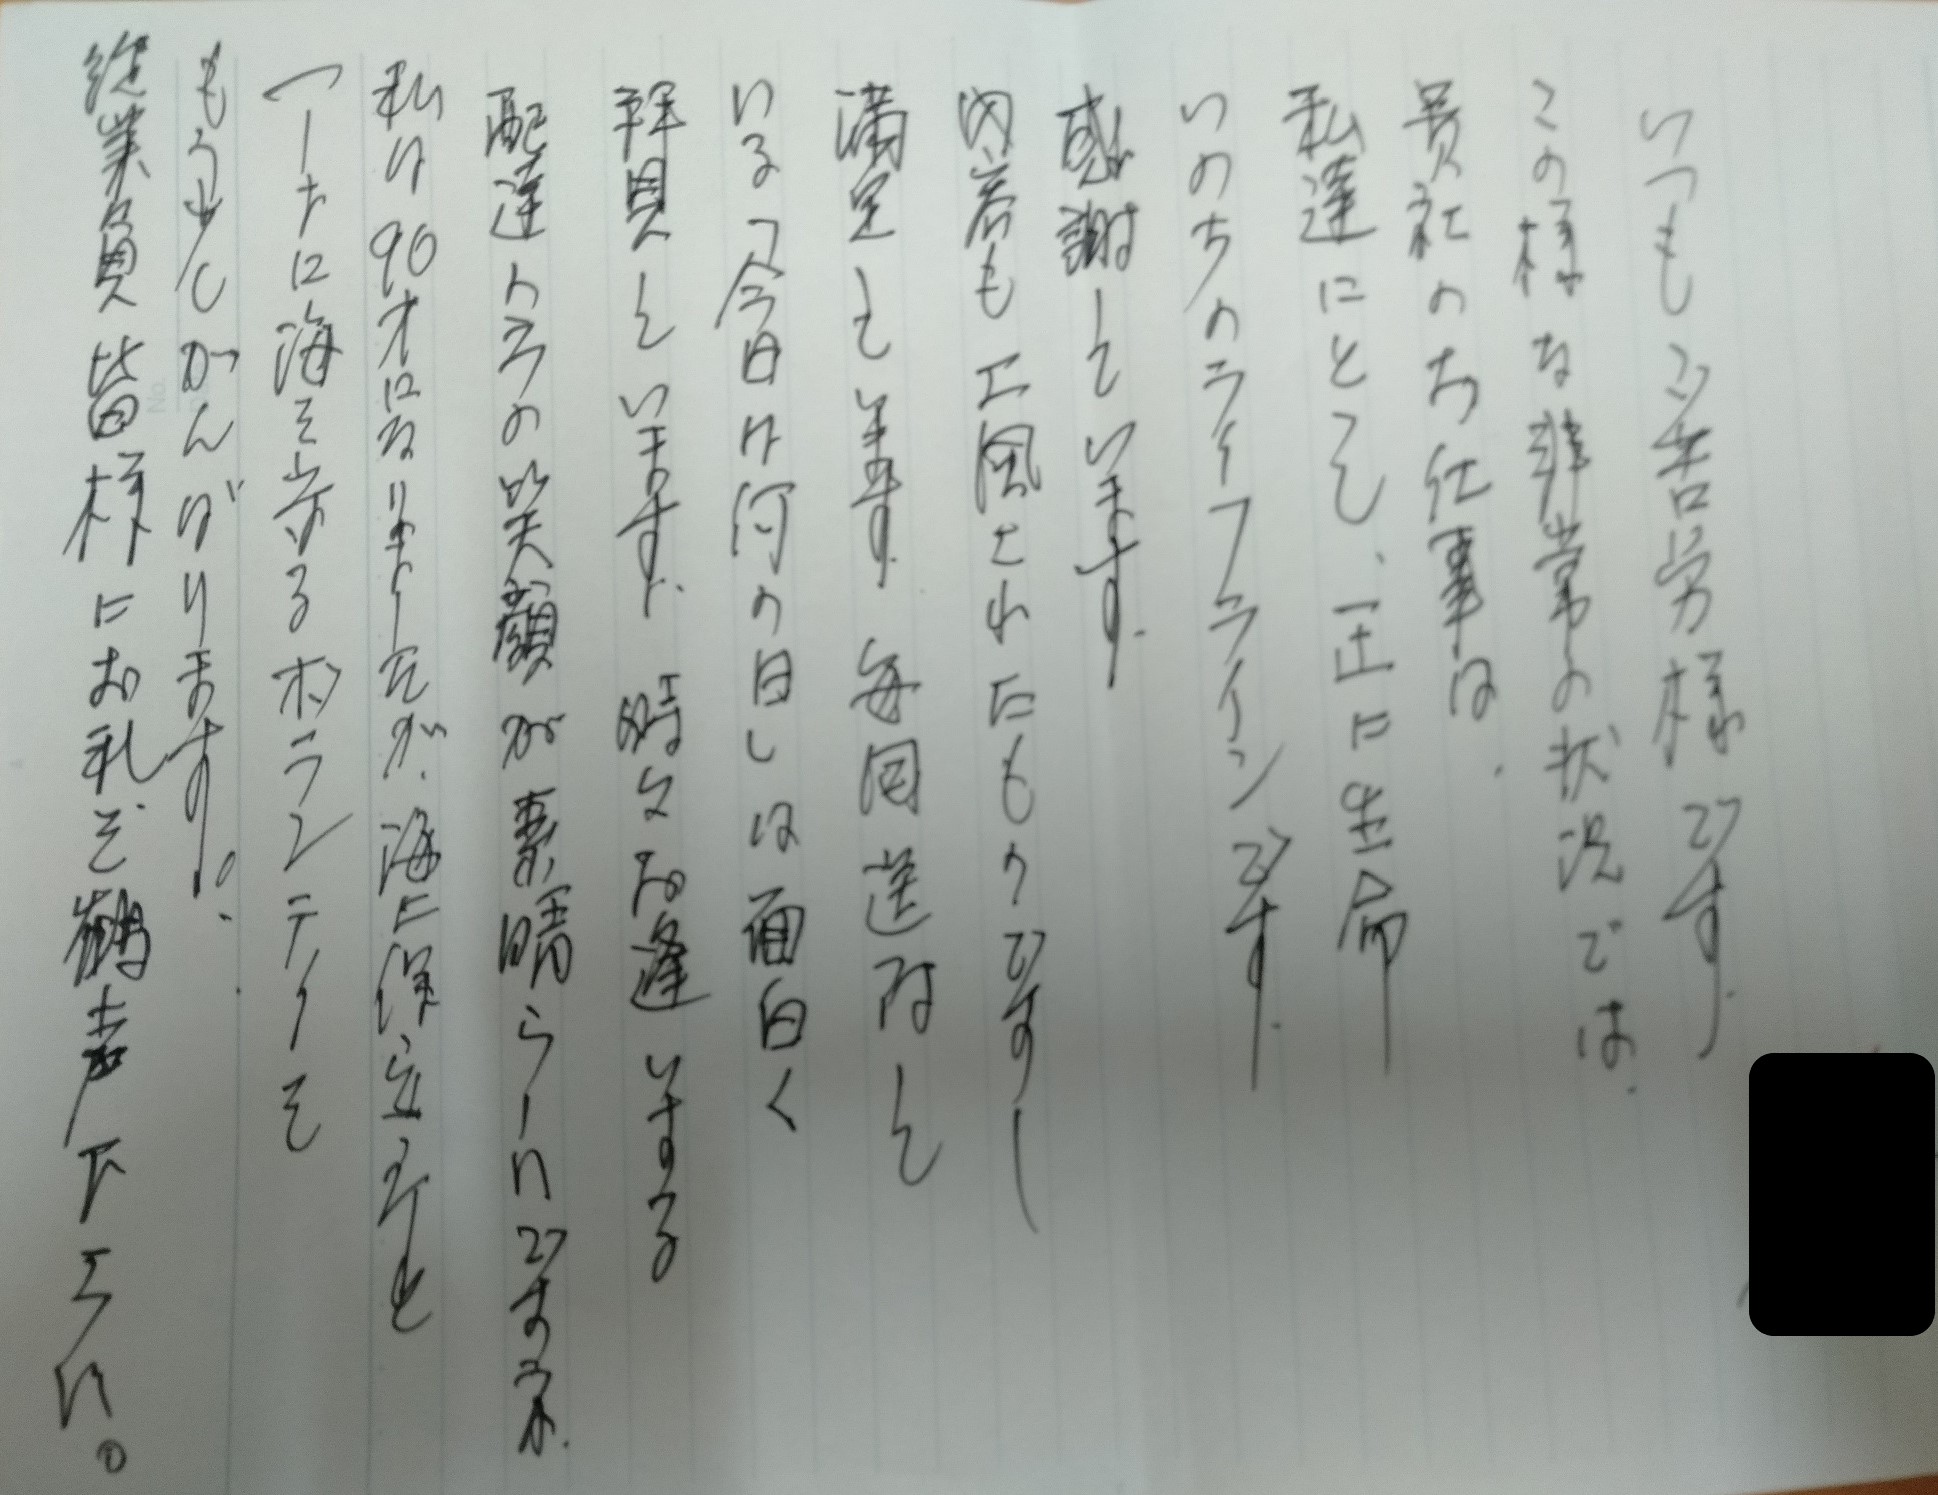 いつもご苦労様です。
この様な非常の状況では、
貴社のお仕事は、
私達にとって、正に生命
いのちのライフラインです。
感謝しています。
内容も工風されたものですし
満足しています。毎回送付して
いる「今日は何の日」は面白く
拝見しています。時々お逢いする
配達人の笑顔が素晴らしいですネ。
私は90才になりましたが、海に役立ちと
一した海を守るボランティを
もう少しがんばります。
従業員皆様にお礼を
下さい。